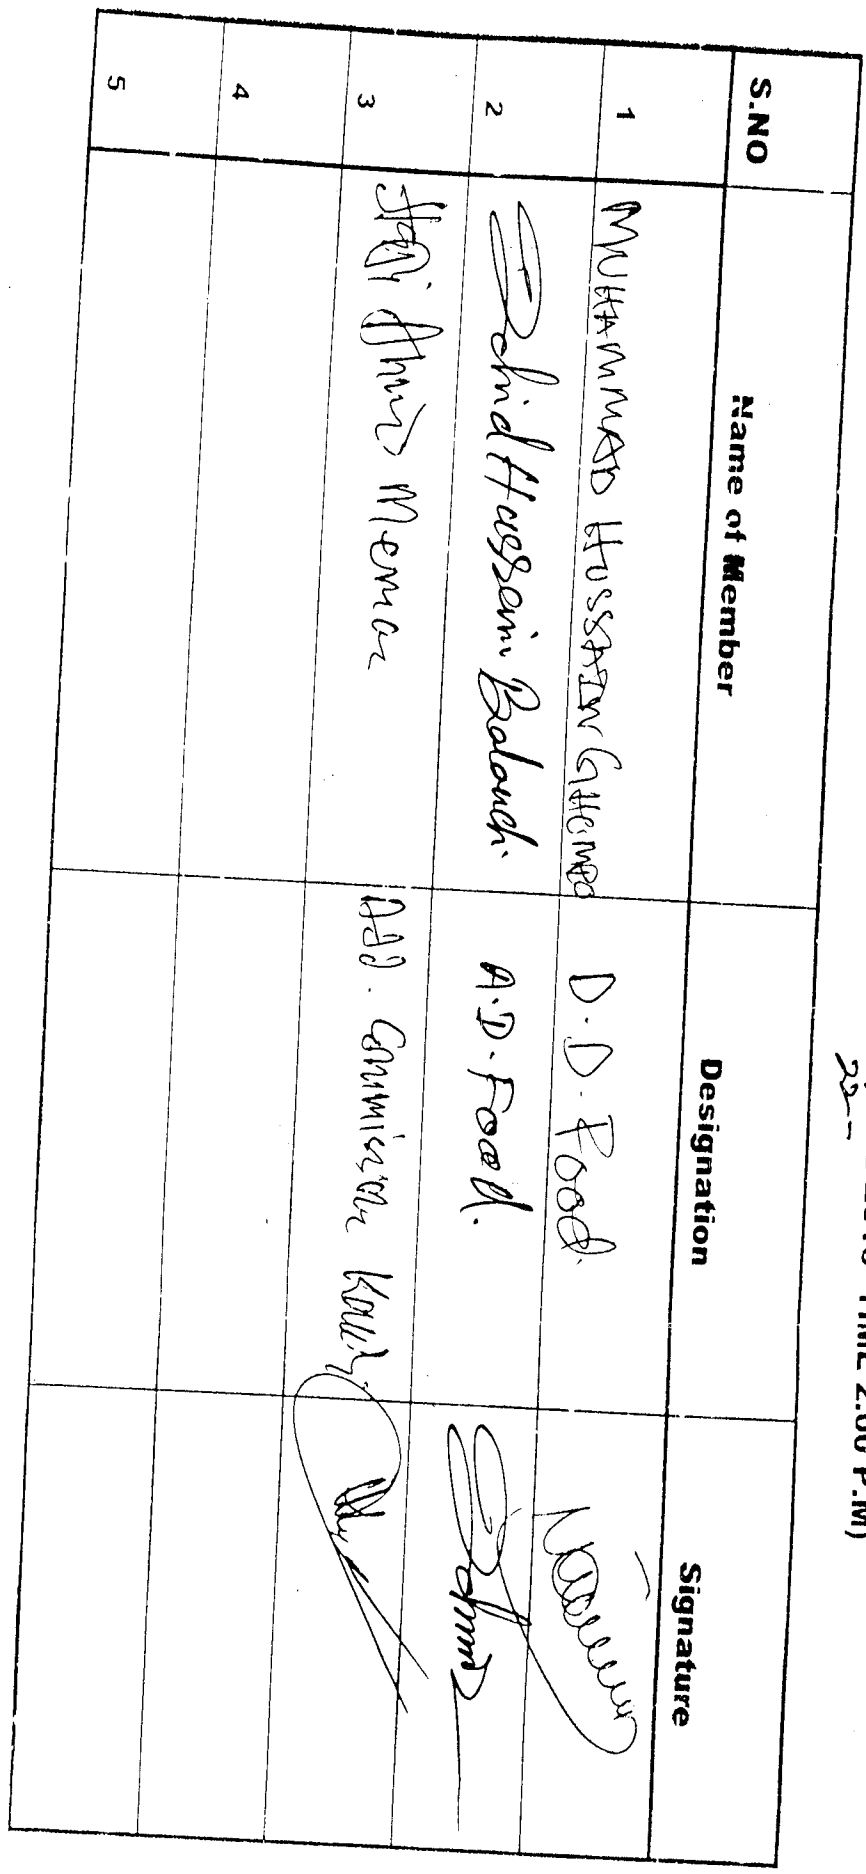 TIME 2.00 P.M)
S.NO Name of Member Designation Signature
1 MUHAMMAD HUSSAIN GHOMRO D.D. Food.
2 Zahid Hussain Balouch. A.D. Food.
3 Haji Ahmed Memon Add. Commissioner Karachi
4
5